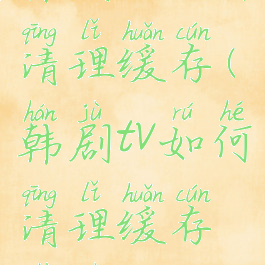 qīng lǐ huǎn cún
清理缓存(
hán jù rú hé
韩剧tv如何
qīng lǐ huǎn cún
清理缓存